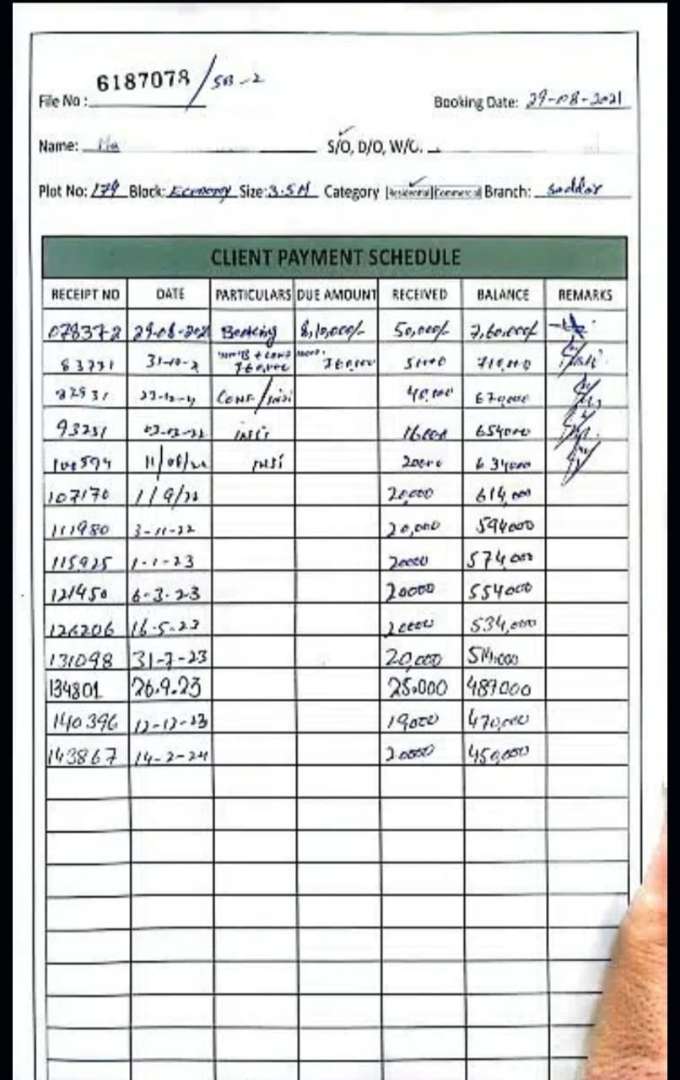 6187078 / SB-2
File No : Booking Date: 29-08-2021
Name: S/O, D/O, W/O.
Plot No: 179 Block: Economy Size: 3.5M Category Residential Commercial Branch: Saddar
CLIENT PAYMENT SCHEDULE
RECEIPT NO DATE PARTICULARS DUE AMOUNT RECEIVED BALANCE REMARKS
078372 29-08-2021 Booking 8,10,000/- 50,000/- 7,60,000/-
83731 31-10-2 760,000 760,000 51000 710,000
Conf/insi 40,000 670000
93251 insi 16000 654000
100594 11/06/22 insi 20000 634000
107170 1/9/22 20,000 614,000
111980 3-11-22 20,000 594000
115925 1-1-23 20000 574,000
121450 6-3-23 20000 554000
126206 16-5-23 20000 534,000
131098 31-7-23 20,000 514,000
134801 26.9.23 25.000 489000
140396 12-12-23 19000 470,000
143867 14-2-24 20000 450,000